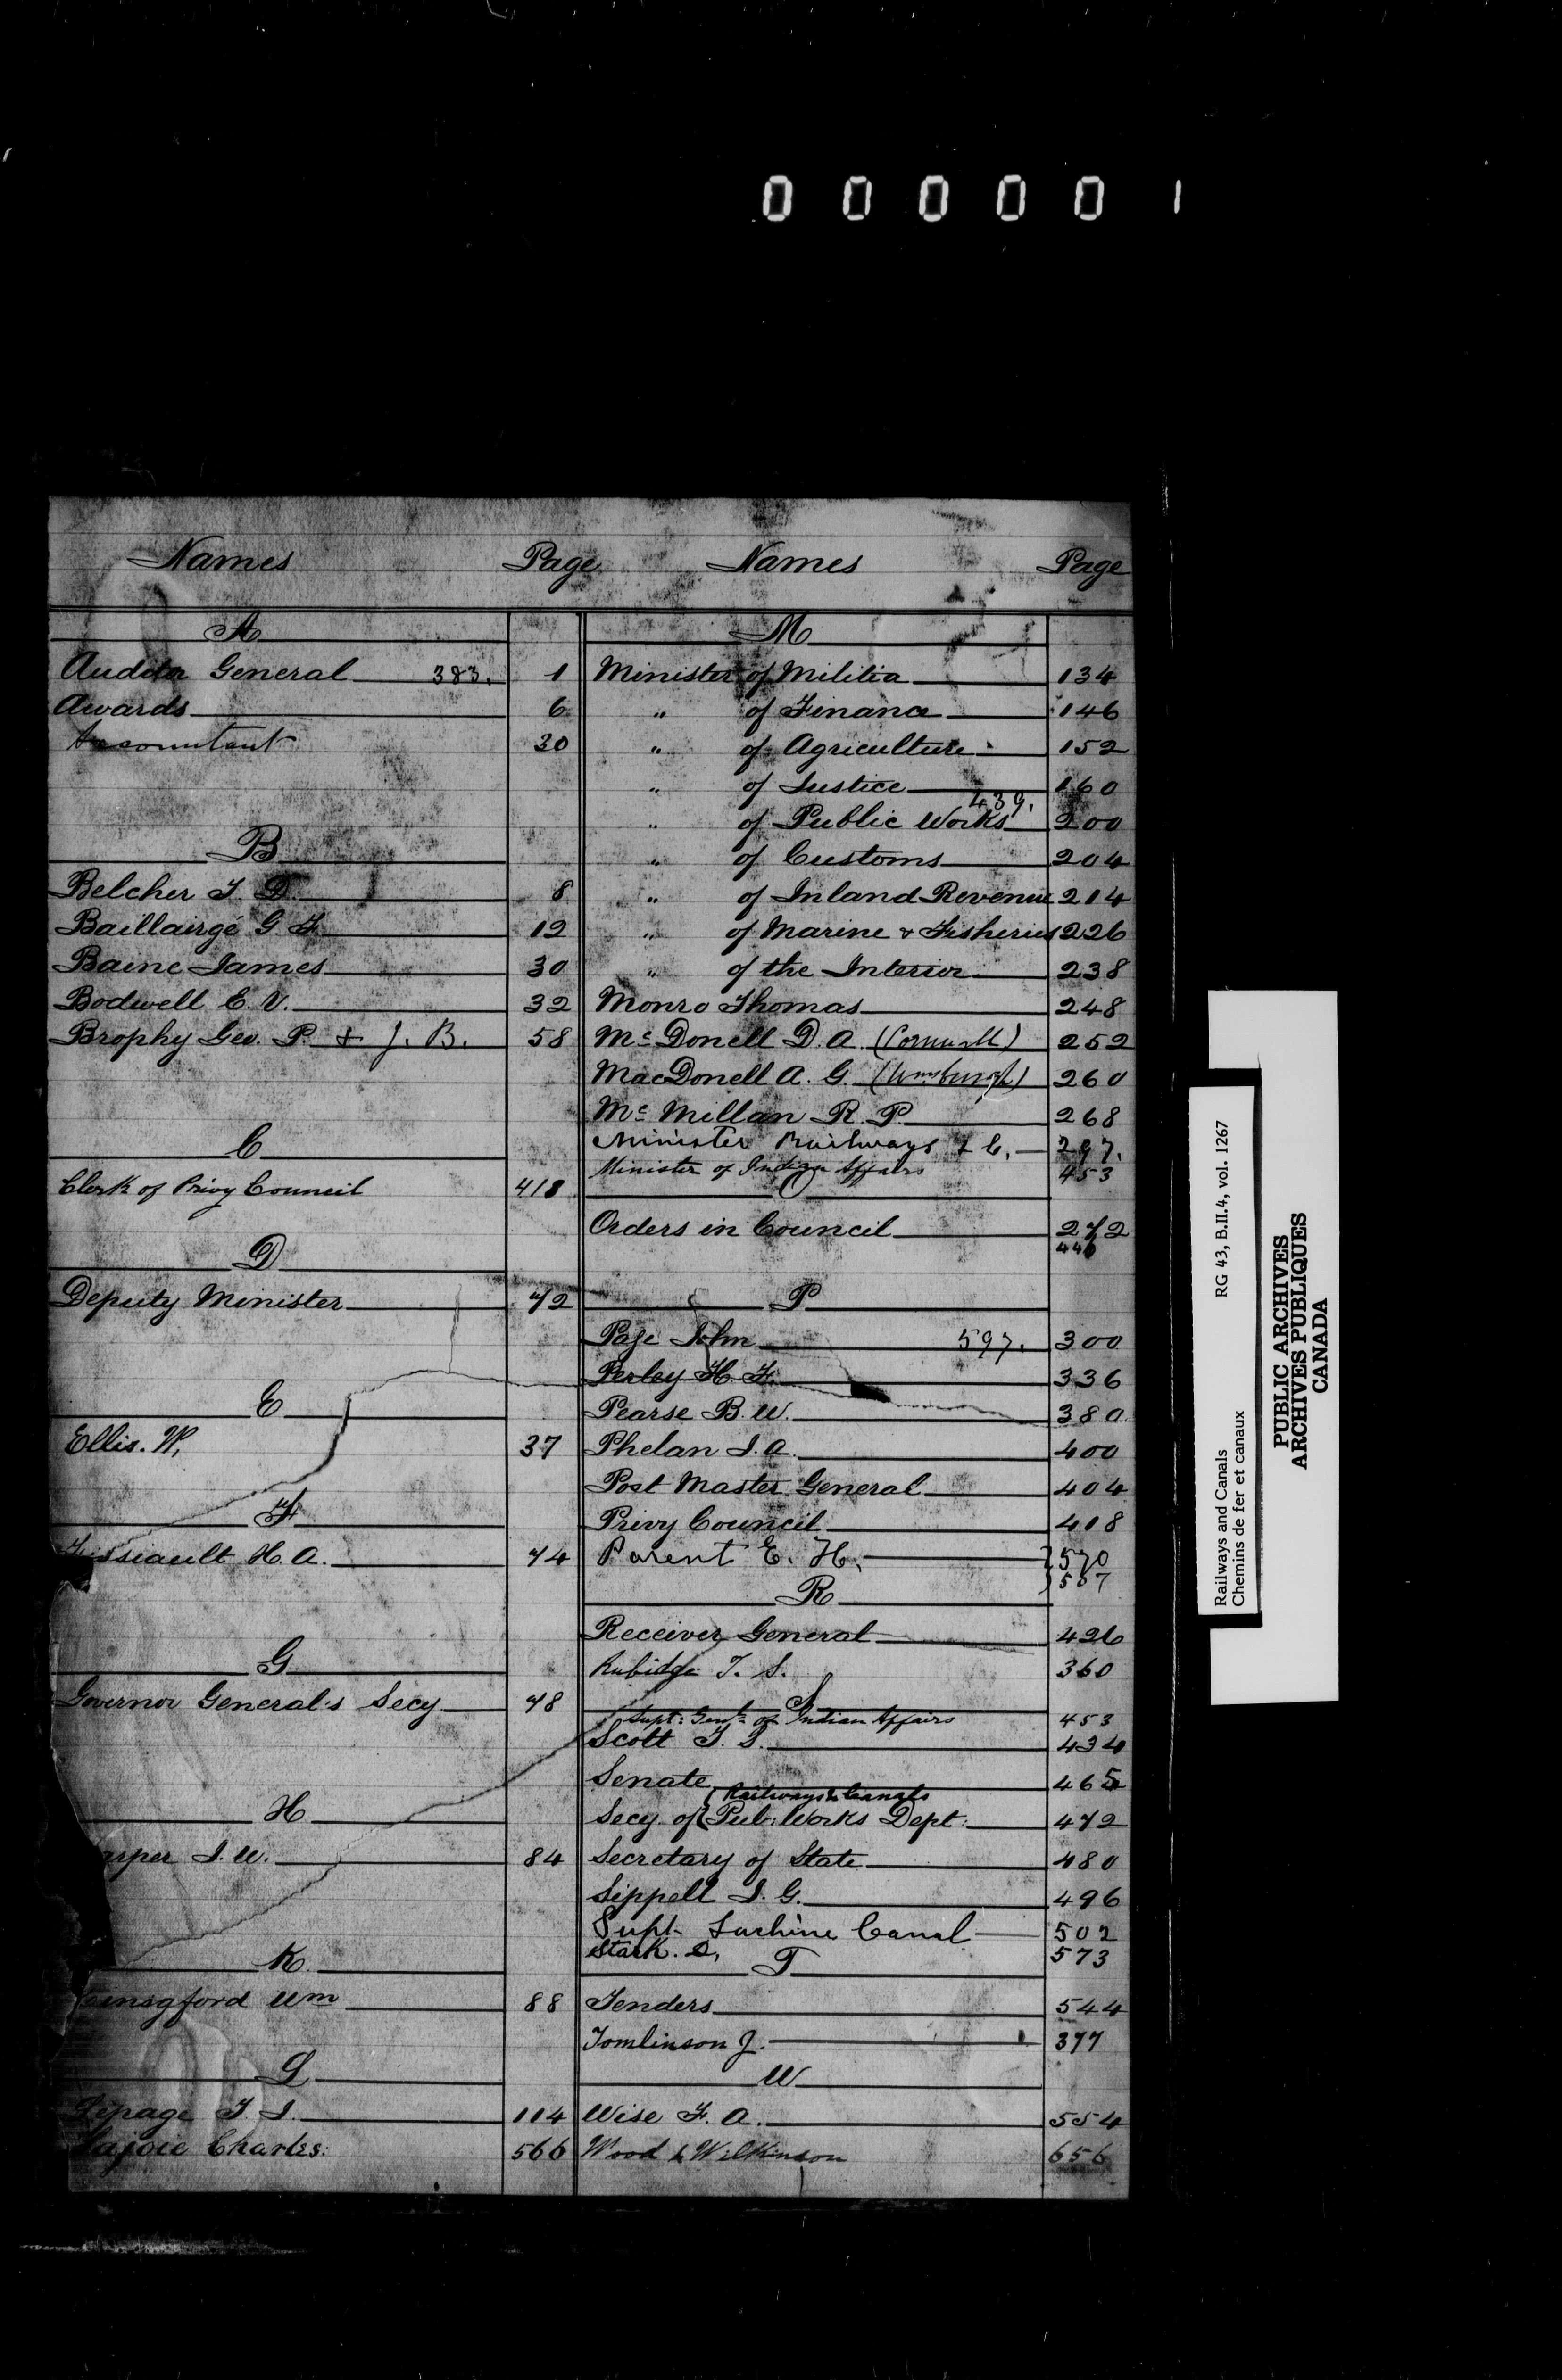 000001
Names Page Names Page
A
Auditor General 383. 1
Awards 6
Accountant 30
B
Belcher T. D. 8
Baillairgé G. F. 12
Baine James 30
Bodwell E. V. 32
Brophy Geo. P. & J. B. 58
C
Clerk of Privy Council 418
D
Deputy Minister 72
E
Ellis. W. 37
F
Fissiault H. A. 74
G
Governor General's Secy 78
H
arper J. W. 84
K
ingsford Wm 88
L
Lepage T. J. 114
Lajoie Charles 566
M
Minister of Militia 134
" of Finance 146
" of Agriculture 152
" of Justice 160
439.
" of Public Works 200
" of Customs 204
" of Inland Revenue 214
" of Marine & Fisheries 226
" of the Interior 238
Monro Thomas 248
McDonell D. A. (Cornwall) 252
MacDonell A. G. (Wmsburgh) 260
McMillan R. P. 268
Minister Railways & C. 297.
Minister of Indian Affairs 453
O
Orders in Council 272
446
P
Page John 597. 300
Perley H. F. 336
Pearse B. W. 380
Phelan J. A. 400
Post Master General 404
Privy Council 418
Parent E. H. 570
587
R
Receiver General 426
Rubidge T. S. 360
S
Supt: Genl: of Indian Affairs 453
Scott T. S. 434
Senate 465
Railways & Canals
Secy. of Pub: Works Dept: 472
Secretary of State 480
Sippell J. G. 496
Supt. Lachine Canal 502
Stark. D. 573
T
Tenders 544
Tomlinson J. 377
W
Wise F. A. 554
Wood & Wilkinson 656
Railways and Canals RG 43, B.II.4, vol. 1267
Chemins de fer et canaux
PUBLIC ARCHIVES
ARCHIVES PUBLIQUES
CANADA